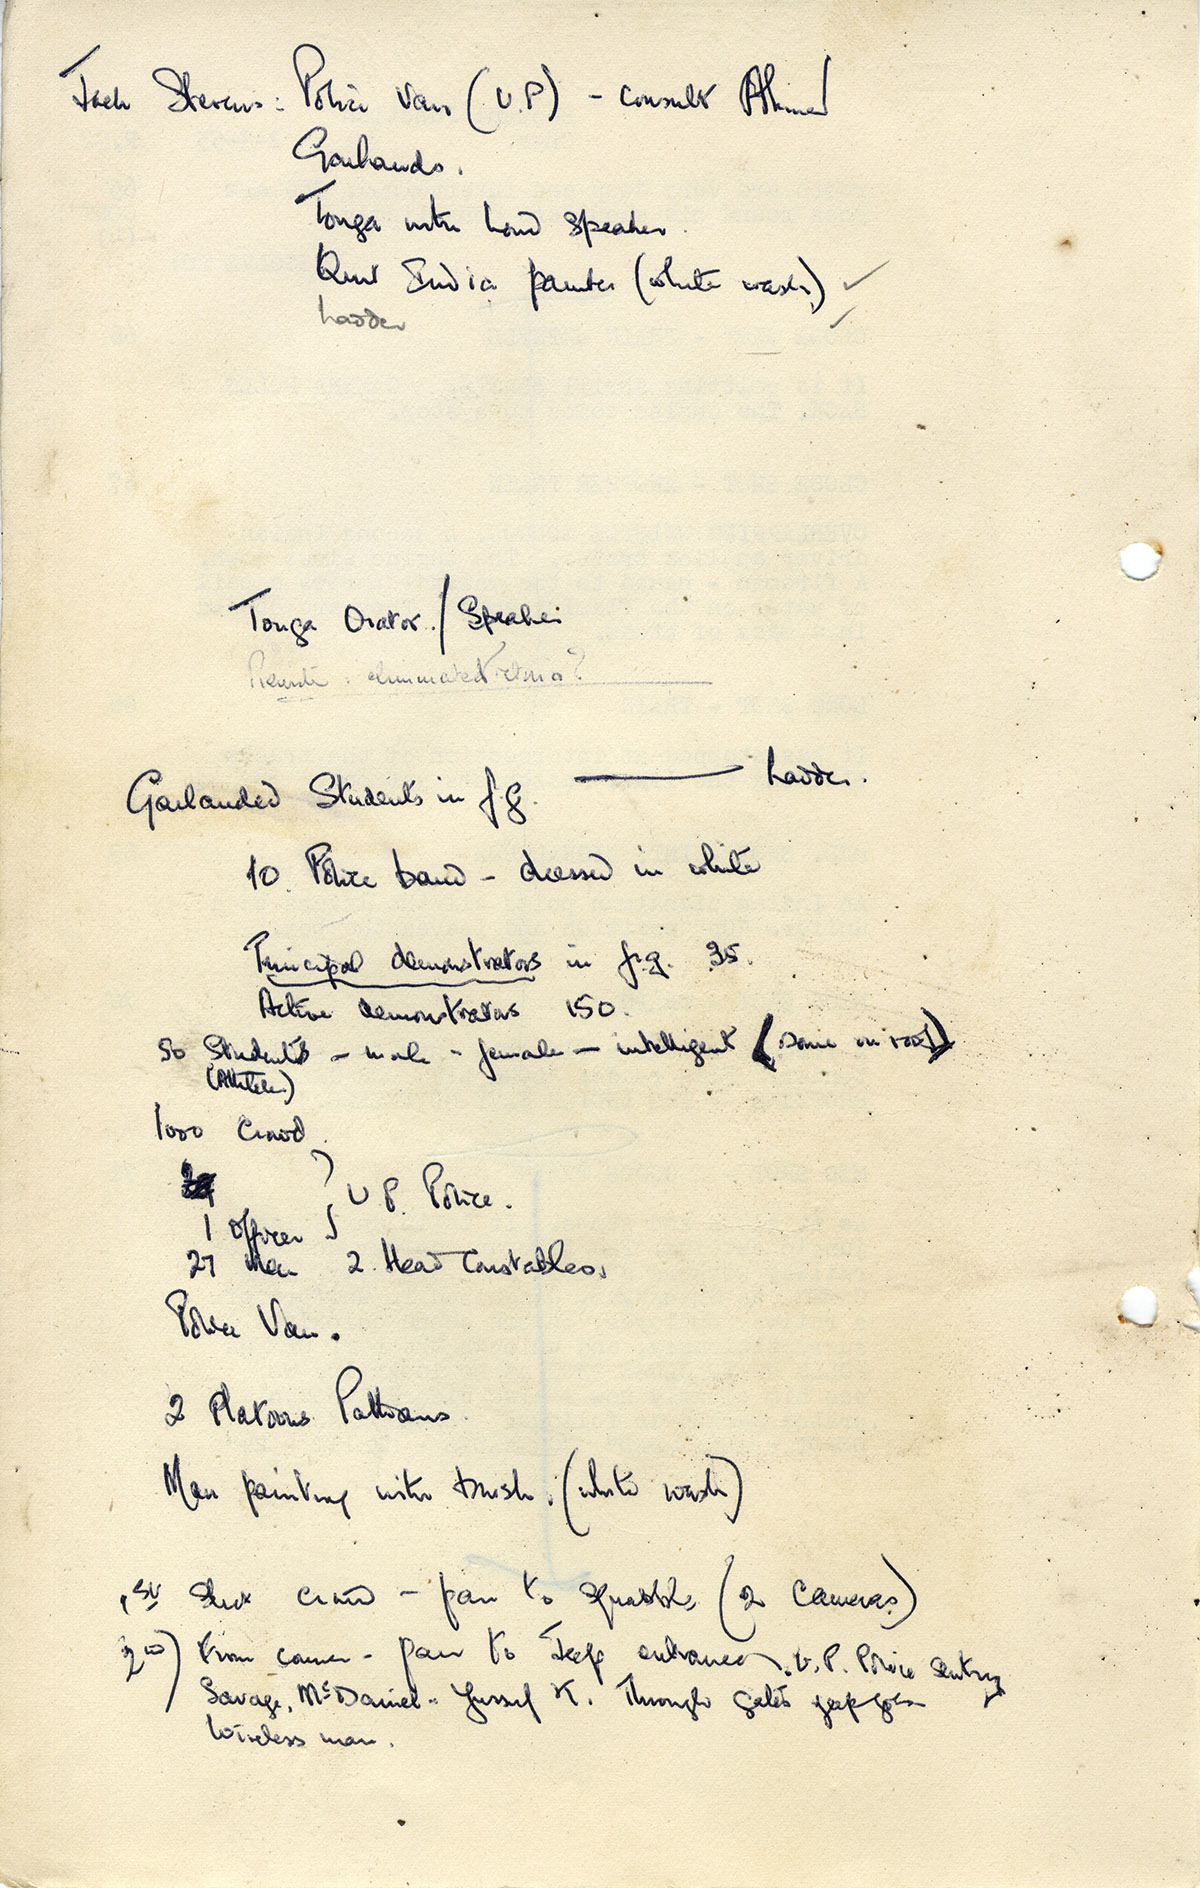 Jack Stevens: Police Van (U.P) - consult Ahmed
Garlands.
Tonga with loud speaker.
Quit India painter (white wash) ✓
ladder ✓
Tonga Orator. / Speaker
eliminated ?
Garlanded Students in f.g. — ladder.
10 Police band - dressed in white
Principal demonstrators in f.g. 35.
Active demonstrators 150.
50 Students - male - female - intelligent (some on roof)
1000 Crowd.
} U.P. Police.
1 Officer
27 Men 2 Head Constables.
Police Van.
2 Platoons Pathans.
Man painting with brush. (white wash)
1st Shot crowd - pan to squabble (2 cameras)
2nd) From corner - pan to Jeep entrance. U.P. Police Sentry
Savage, McDaniel - Yussuf K. Through gates jeep goes
Wireless man.